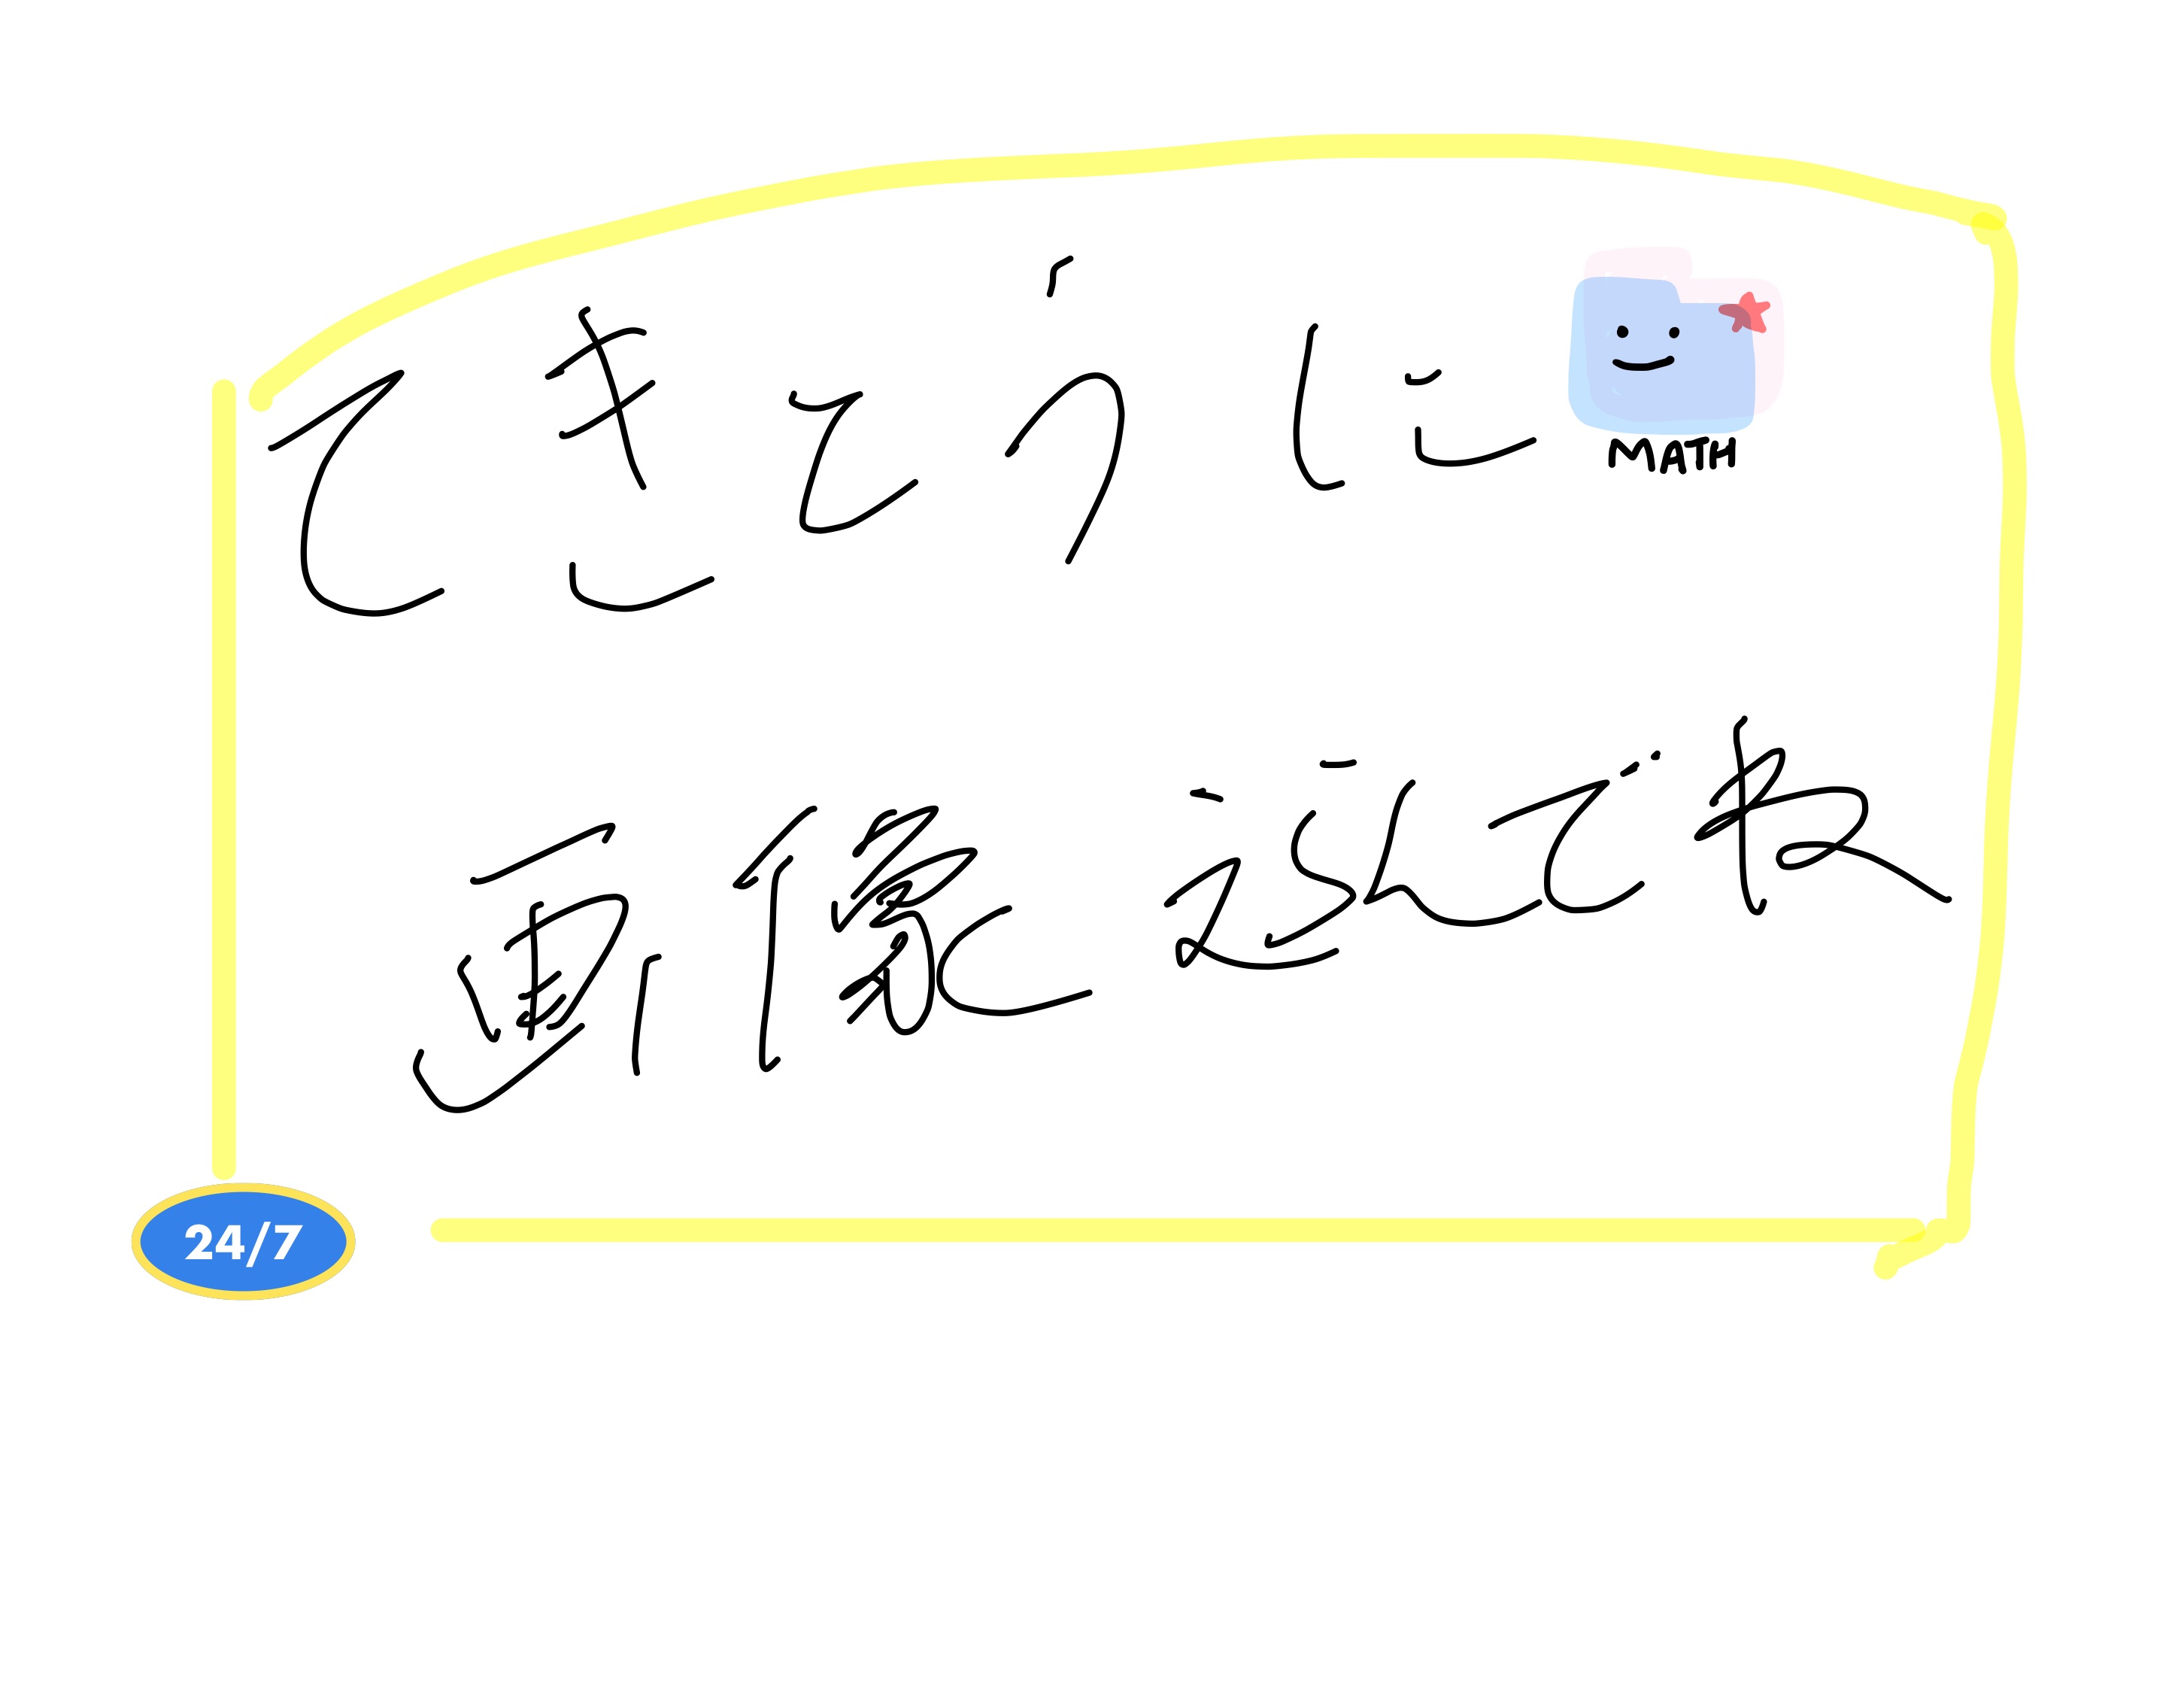 てきとうに
MATH
画像送んでね
24/7